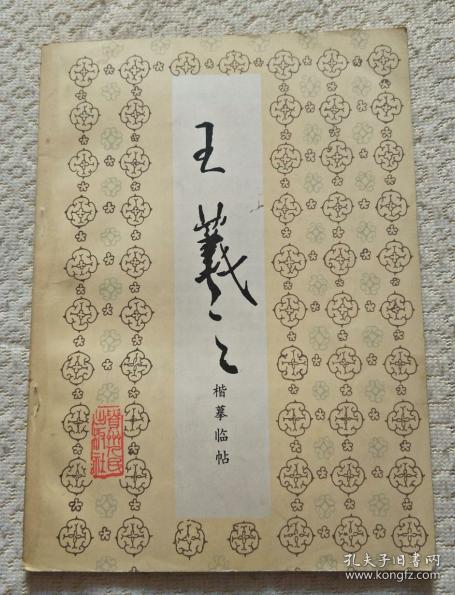 王羲之
楷摹临帖
贵州人民
出版社
孔夫子旧书网
www.kongfz.com